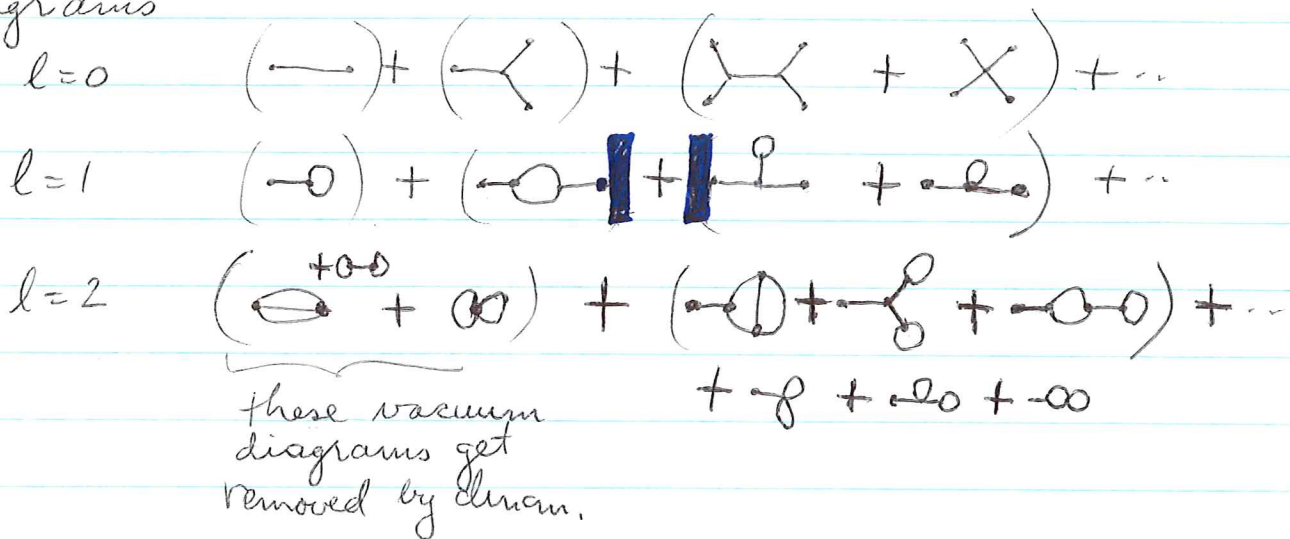 grams
l=0 ( ) + ( ) + ( + ) + ..
l=1 ( ) + ( + + ) + ..
l=2 ( + + ) + ( + + ) + ...
+ + +
these vacuum
diagrams get
removed by